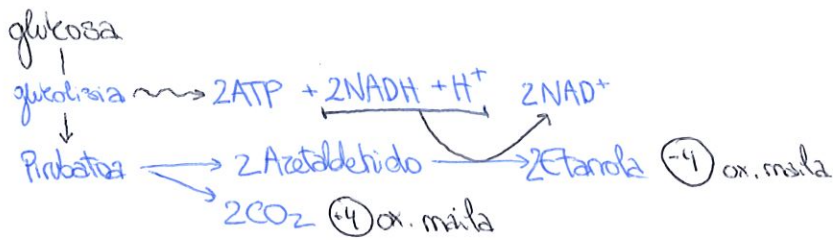 glukosa
glukolisia → 2ATP + 2NADH + H⁺ 2NAD⁺
Pirubatoa → 2 Azetaldehido → 2Etanola (-4) ox. maila
2CO₂ (+4) ox. maila